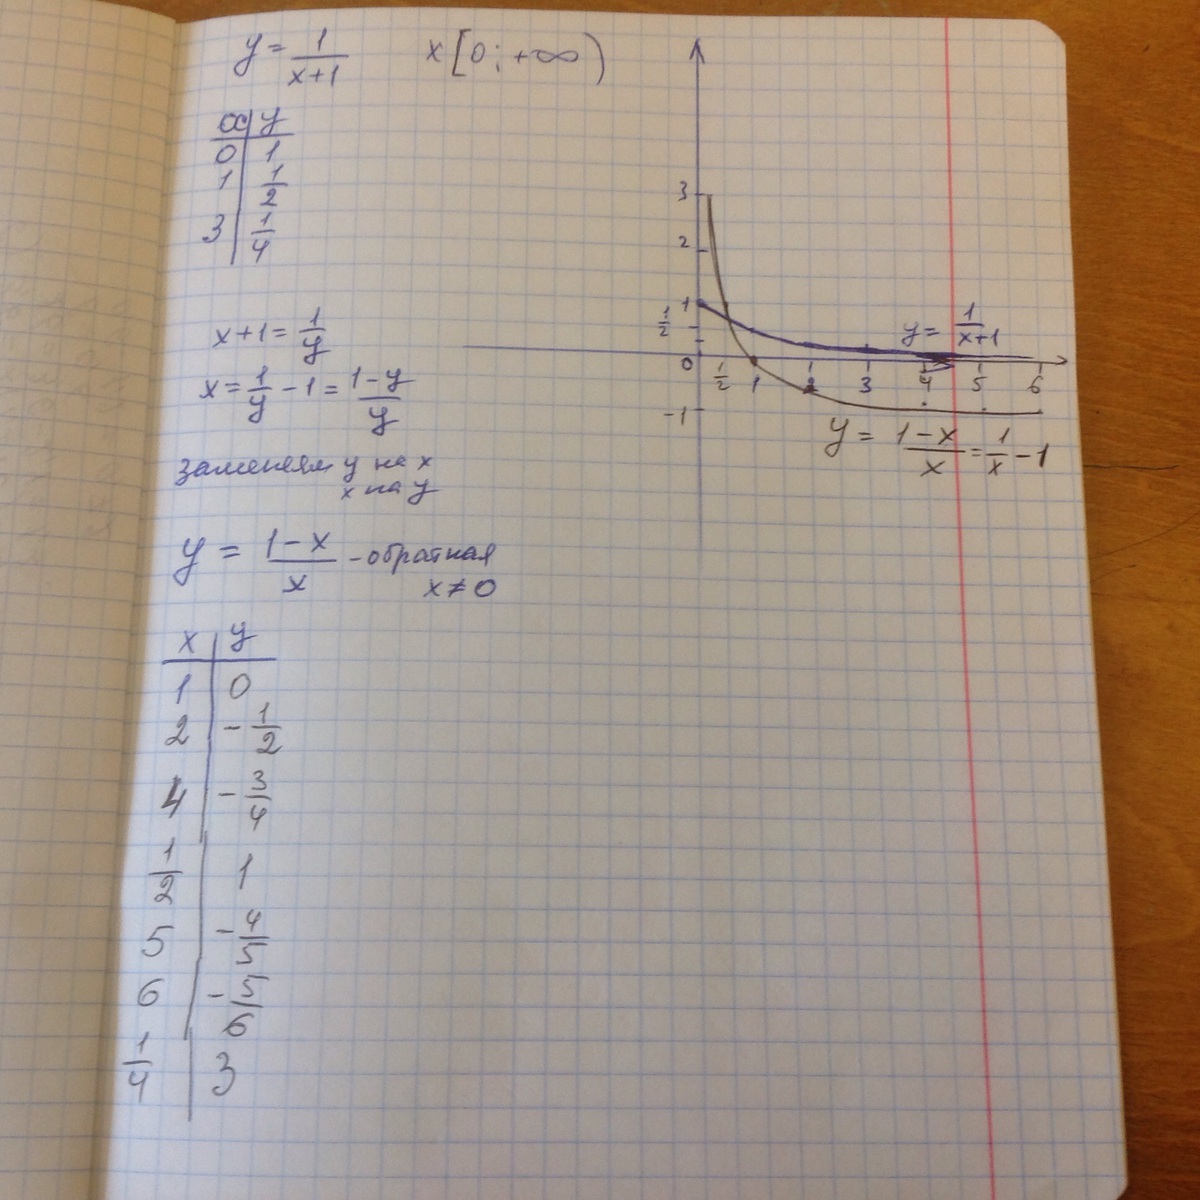 y = 1/(x+1) x [0; +∞)
x | y
0 | 1
1 | 1/2
3 | 1/4
x+1 = 1/y
x = 1/y - 1 = (1-y)/y
заменяем y на x
x на y
y = (1-x)/x - обратная
x ≠ 0
x | y
1 | 0
2 | -1/2
4 | -3/4
1/2 | 1
5 | -4/5
6 | -5/6
1/4 | 3
3
2
1
1/2
0 1/2 1 2 3 4 5 6
-1
y = 1/(x+1)
y = (1-x)/x = 1/x - 1